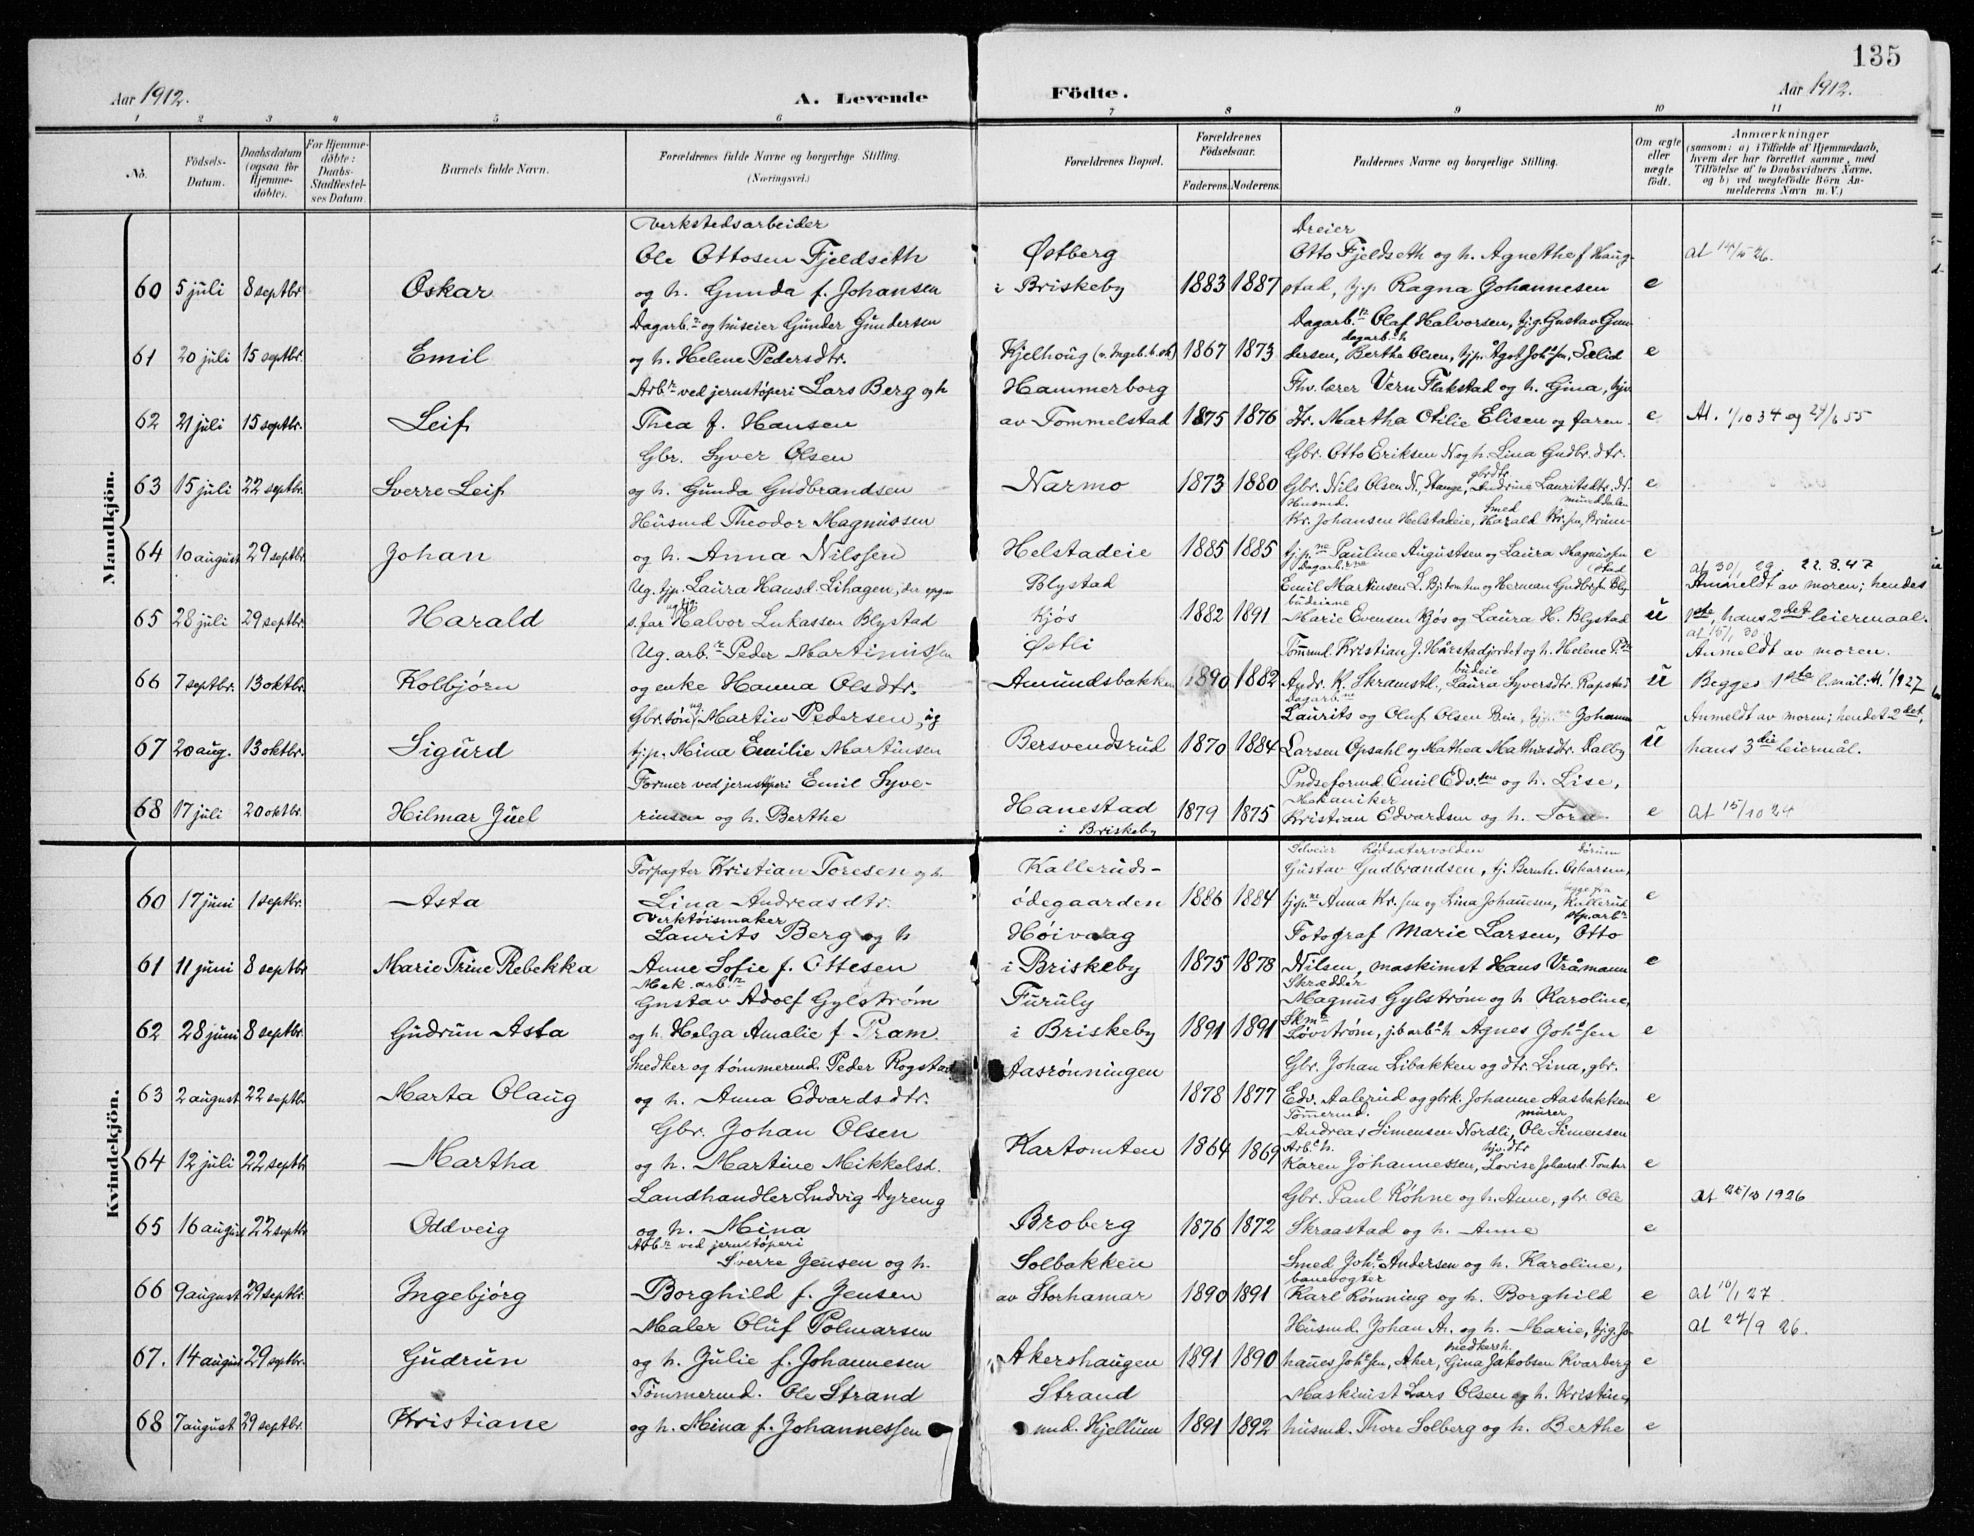 135
Aar 1912.
A. Levende
Födte.
Aar 1912.
1 2 3 4 5 6 7 8 9 10 11
No.
Födsels-Datum.
Daabsdatum (ogsaa for Hjemme-döbte).
For Hjemme-döbte: Daabs-Stadfæstel-ses Datum.
Barnets fulde Navn.
Forældrenes fulde Navne og borgerlige Stilling.
(Næringsvei.)
Forældrenes Bopæl.
Forældrenes Födselsaar.
Faderens. Moderens.
Faddernes Navne og borgerlige Stilling.
Om ægte eller uægte födt.
Anmærkninger
(saasom: a) i Tilfælde af Hjemmedaab, hvem der har forrettet samme, med Tilföielse af to Daabsvidners Navne, og b) ved uægtefödte Börn An-melderens Navn m. V.)
Mandkjön.
Verkstedsarbeider
Dreier
Ole Ottosen Fjeldseth
Østberg
Otto Fjeldseth og h. Agnethe f Haug-
60 5 juli 8 septbr. Oskar og h. Gunda f. Johansen i Briskeby 1883 1887 stad, tjp. Ragna Johannesen e
Dagarb.r og huseier Gunder Gundersen
Dagarb.r Olaf Halvorsen, tjg. Gustav Gun-
dagarb.h
61 20 juli 15 septbr. Emil og h. Helene Pedersdtr. Kjelhoug 1867 1873 dersen, Berthe Olsen, tjp. Ågot Johsen, Sælid e
Arb.r ved jernstøperi Lars Berg og h
Hammerborg
Fhv. lærer Vern Flakstad og h. Gina, hjv.
62 21 juli 15 septbr. Leif Thea f. Hansen av Tommelstad 1875 1876 dtr. Martha Otilie Elisen og faren. e At. 1/10 34 og 24/6 55
Gbr. Syver Olsen
Gbr. Otto Eriksen N og h. Lina Gudbr.dtr.
gbrdtr.
63 15 juli 22 septbr. Sverre Leif og h. Gunda Gudbrandsen Narmo 1873 1880 Gbr. Nils Olsen N., Stange, Andrine Lauritsdtr. N. e
Husmd. Theodor Magnussen
Husmd. Smed
Kr. Johansen Helstadeie, Harald Kr.sen, Brun-
64 10 august 29 septbr. Johan og h. Anna Nilssen Helstadeie 1885 1885 tjp.ne Pauline Augustsen og Laura Magnussen e
Dagarb.rne
Ug. tjp. Laura Hansd. Lihagen,
Blystad
Emil Martinsen L. og Herman
Anmeldt av moren; hendes
65 28 juli 29 septbr. Harald s. far Halvor Lukassen Blystad Kjøs 1882 1891 Marie Evensen Kjøs og Laura H. Blystad u 1ste, hans 2det leiermaal.
budeiene
Ug. arb.r Peder Martinussen
Østli
Tømmd. Kristian J. Hårstadjordet og h. Helene
Anmeldt av moren.
budeie
66 7 septbr. 13 oktbr. Kolbjörn og enke Hanna Olsdtr. Amundsbakken 1890 1882 Andr. K. Skramstd., Laura Syversdtr. Rapstad u Begges 1ste l.mål. 1927
Gbr. søn, ug. Martin Pedersen, ug
Dagarb.ne
Laurits og Oluf Olsen Beie, tjp.ne Johanne
Anmeldt av moren; hendes 2det,
67 20 aug. 13 oktbr. Sigurd tjp. Mina Emilie Martinsen Bersvendsrud 1870 1884 Larsen Opsahl og Mathea Mathisdtr. Dalby u hans 3die leiermål.
Former ved jernstøperi Emil Syve-
Pudseformd. Emil Edv.sen og h. Lise,
Mekaniker
68 17 juli 20 oktbr. Hilmar Juel rinsen og h. Berthe Hanestad 1879 1875 Kristian Edvardsen og h. Tora e At 15/10 24
i Briskeby
Kvindekjön.
Selveier
Forpagter Kristian Toresen og h.
Kallerud-
Gustav Gudbrandsen, tj. Bernh. Oskarsen,
60 17 juni 1 septbr. Asta Lina Andreasdtr. ödegaarden 1886 1884 tjp.ne Anna Kr.sen og Lina Johannesen, Kallerud e
Verktøismaker
Laurits Berg og h
Høivaag
Fotograf Marie Larsen, Otto
61 11 juni 8 septbr Marie Trine Rebekka Anne Sofie f. Ottesen i Briskeby 1875 1878 Nilsen, maskinist Hans Vråmann e
Mek. arb.r
Skrædder
Gustav Adolf Gylstrøm
Furuly
Magnus Gylstrøm og h. Karoline,
62 28 juni 8 septbr. Gudrun Asta og h. Helga Amalie f. Pram. i Briskeby 1891 1891 Løvstrøm, jb.arb.h Agnes Johsen e
Snedker og tømmermd. Peder Rogstad
Aasrönningen
Gbr. Johan Libakken og dtr. Lina, gbr.
63 2 august 22 septbr. Marta Olaug og h. Anna Edvardsdtr. 1878 1877 Edv. Aalerud og gbrk. Johanne Aasbakken e
Tömmermd. murer
Gbr. Johan Olsen
Andreas Simensen Nordli, Ole Simensen
Arb.r h.
64 12 juli 22 septbr Martha og h. Martine Mikkelsd. Kartomten 1864 1869 Karen Johannessen, Lovise Johansd. Tomter e
Landhandler Ludvig Dyreng
Gbr. Paul Röhne og h. Anne, gbr. Ole
65 16 august 22 septbr Oddveig og h. Mina Broberg 1876 1872 Skraastad og h. Anne e
Arb.r ved jernstøperi
Sverre Jensen og h.
Solbakken
Smed Joh. Andersen og h. Karoline,
banevogter
66 9 august 29 septbr. Ingebjörg Borghild f. Jensen av Storhamar 1890 1891 Karl Rönning og h. Borghild e At 16/1 27.
Maler Oluf Polmarsen
Husmd. Johan A. og h. Marie, tjg. Jo-
At 27/9 26.
snedkerh.
67. 14 august 29 septbr. Gudrun og h. Julie f. Johannesen Akershaugen 1891 1890 hannes Johsen, Aker, Gina Jakobsen Kvarberg e
Tömmermd. Ole Strand
Strand
Maskinist Lars Olsen og h. Kristine,
68 7 august 29 septbr. Kristiane og h. Mina f. Johannessen und. Hjellum 1891 1892 husmd. Thore Solberg og h. Berthe e